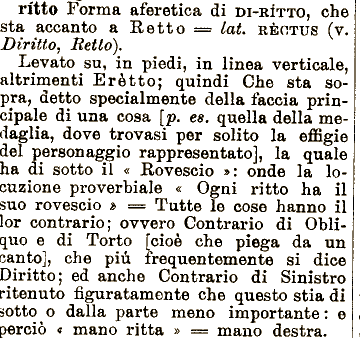 rítto Forma aferetica di DI-RÍTTO, che
sta accanto a Retto = lat. RÈCTUS (v.
Diritto, Retto).
Levato su, in piedi, in linea verticale,
altrimenti Erètto; quindi Che sta so-
pra, detto specialmente della faccia prin-
cipale di una cosa [p. es. quella della me-
daglia, dove trovasi per solito la effigie
del personaggio rappresentato], la quale
ha di sotto il « Rovescio »: onde la lo-
cuzione proverbiale « Ogni ritto ha il
suo rovescio » = Tutte le cose hanno il
lor contrario; ovvero Contrario di Obli-
quo e di Torto [cioè che piega da un
canto], che piú frequentemente si dice
Diritto; ed anche Contrario di Sinistro
ritenuto figuratamente che questo stia di
sotto o dalla parte meno importante: e
perciò « mano ritta » = mano destra.